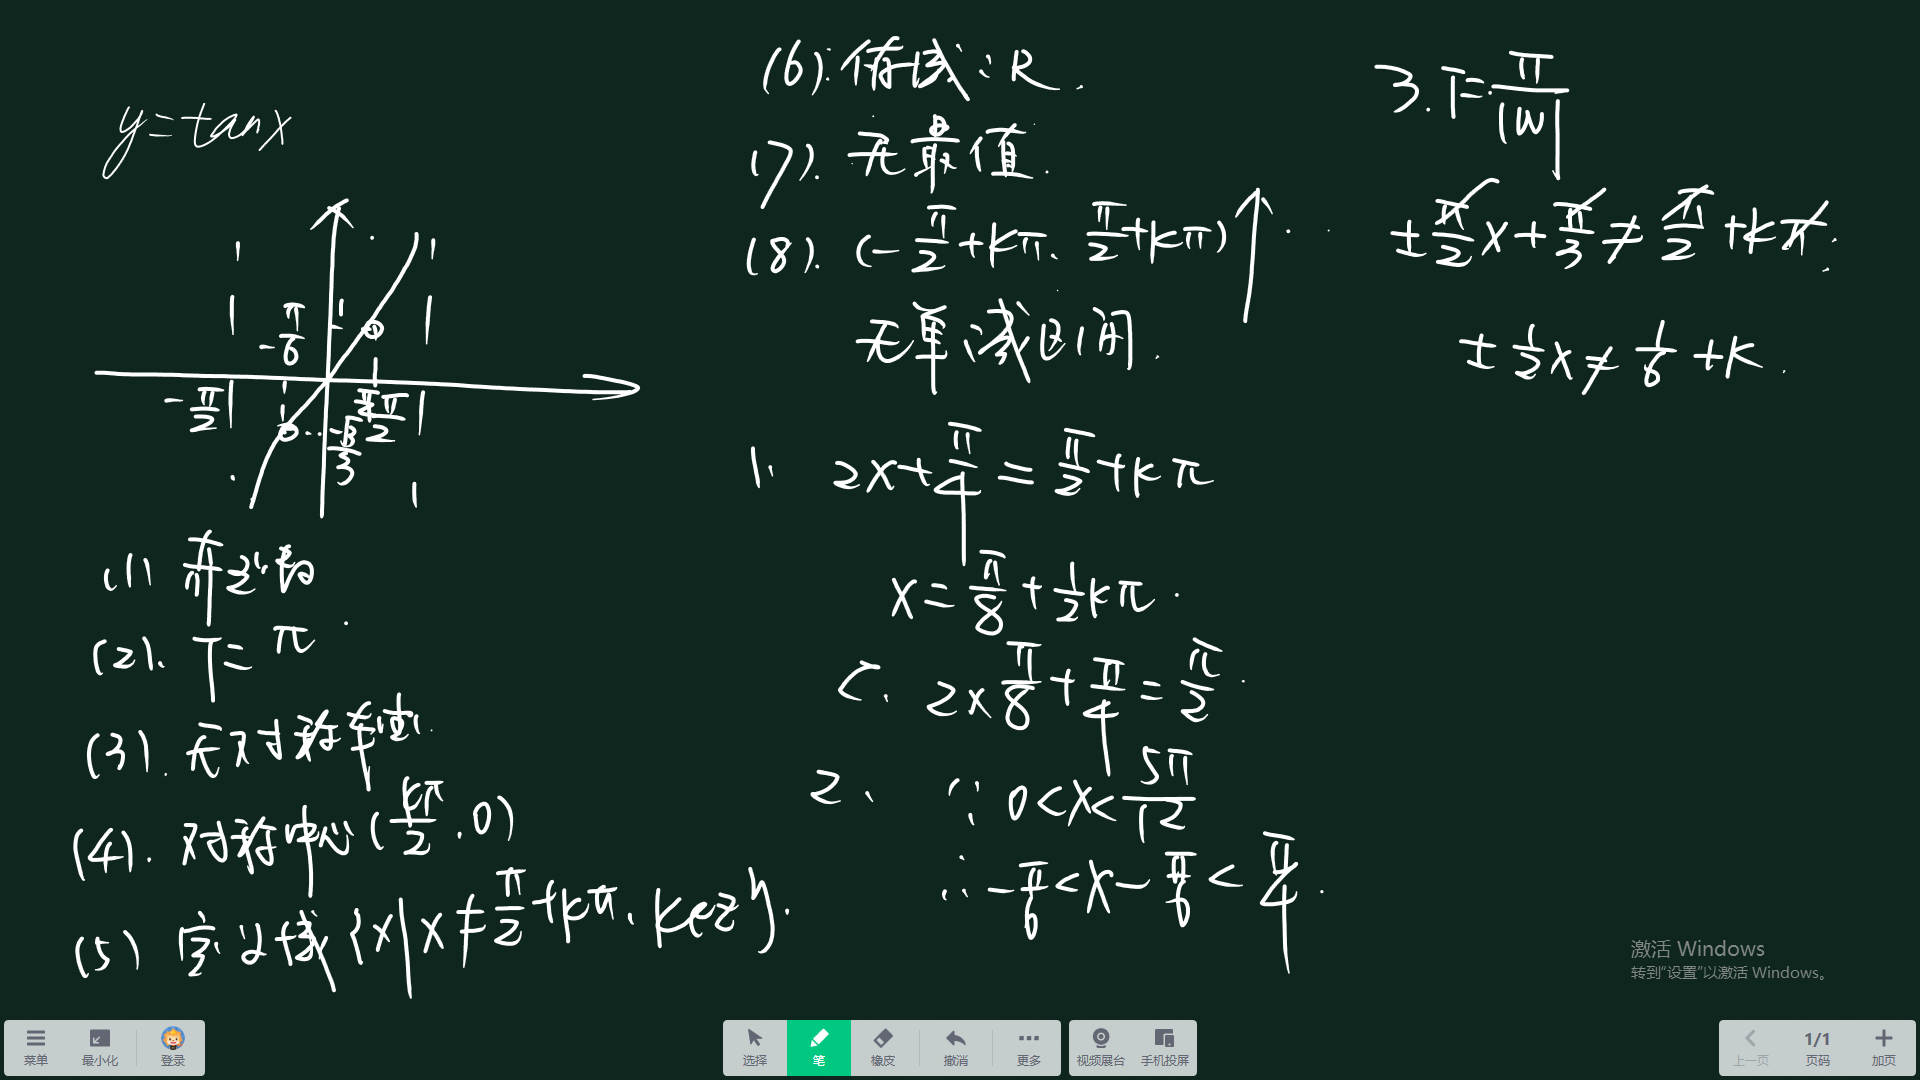 y=tanx
-π/6
1
-π/2
π/4
π/2
-√3/3
(1) 奇函数
(2). T=π
(3). 无对称轴
(4). 对称中心(kπ/2, 0)
(5) 定义域{x|x≠π/2+kπ, k∈Z}.
(6). 值域: R.
(7). 无最值.
(8). (-π/2+kπ, π/2+kπ)↑
无单减区间.
1. 2x+π/4=π/2+kπ
x=π/8+1/2kπ.
C. 2×π/8+π/4=π/2
2. ∵ 0<x<5π/12
∴ -π/6<x-π/6<π/4.
3. T=π/|w|
±π/2x+π/3≠π/2+kπ.
±1/2x≠1/6+k.
激活 Windows
转到“设置”以激活 Windows。
菜单
最小化
登录
选择
笔
橡皮
撤消
更多
视频展台
手机投屏
上一页
1/1
页码
加页